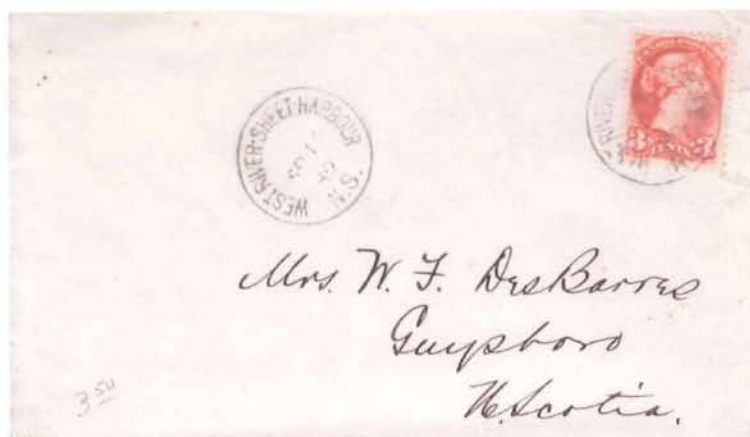 WEST RIVER·SHEET HARBOUR
N.S.
3 CENTS 3
Mrs. W. F. DesBarres
Guysboro
N. Scotia.
3 50